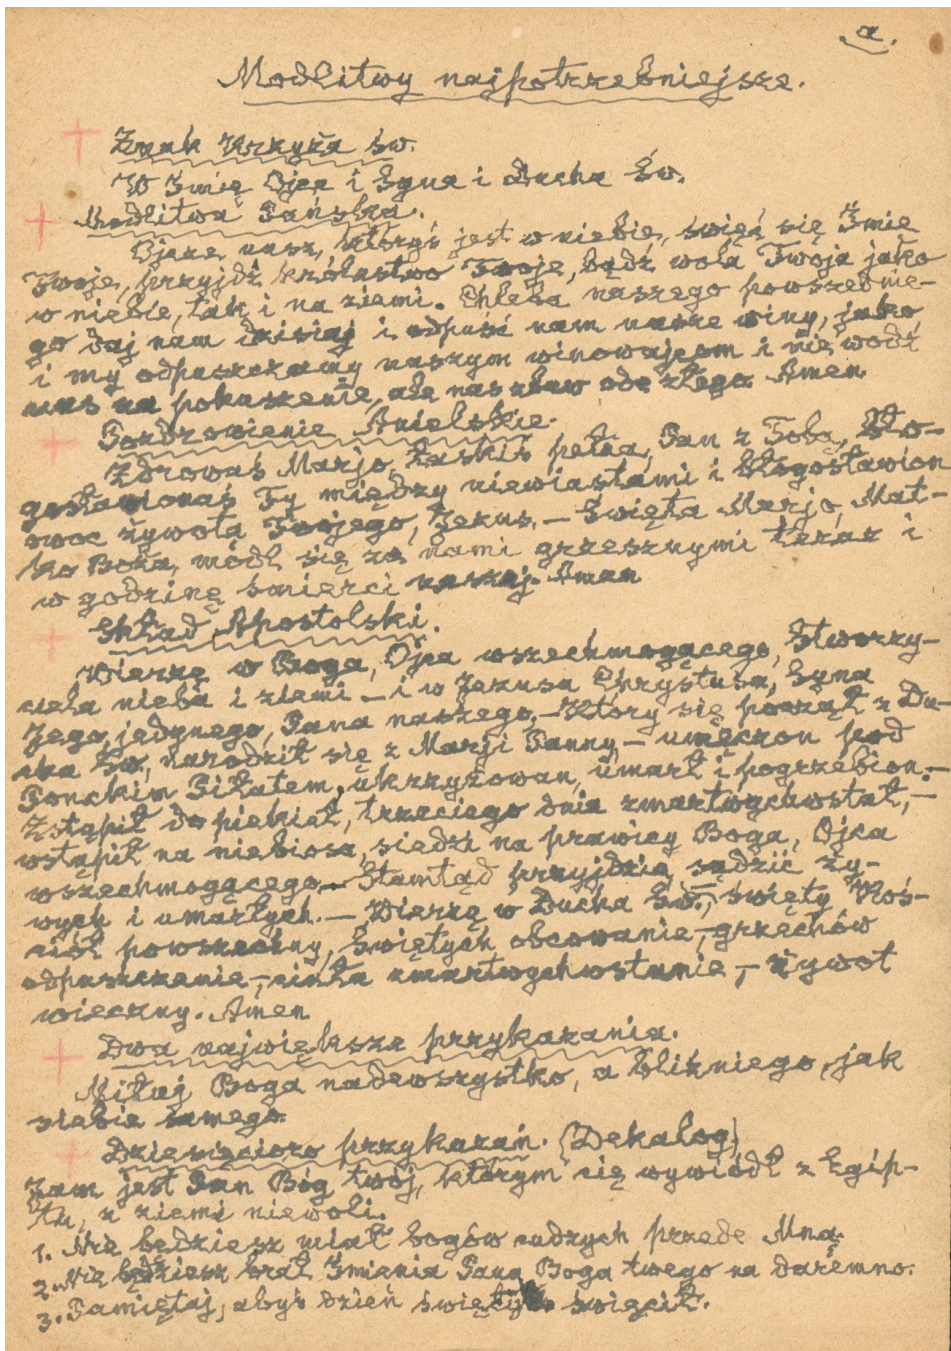 a.
Modlitwy najpotrzebniejsze.
Znak Krzyża św.
W Imię Ojca i Syna i Ducha Św.
Modlitwa Pańska.
Ojcze nasz, któryś jest w niebie, święć się Imię
Twoje, przyjdź królestwo Twoje, bądź wola Twoja jako
w niebie, tak i na ziemi. Chleba naszego powszednie-
go daj nam dzisiaj i odpuść nam nasze winy, jako
i my odpuszczamy naszym winowajcom i nie wodź
nas na pokuszenie, ale nas zbaw ode złego. Amen.
Pozdrowienie Anielskie.
Zdrowaś Marjo, łaskiś pełna, Pan z Tobą, Bło-
gosławionaś Ty między niewiastami i błogosławion
owoc żywota Twojego, Jezus. – Święta Marjo, Mat-
ko Boża, módl się za nami grzesznymi teraz i
w godzinę śmierci naszej. Amen
Skład Apostolski.
Wierzę w Boga, Ojca wszechmogącego, Stworzy-
ciela nieba i ziemi – i w Jezusa Chrystusa, Syna
Jego jedynego, Pana naszego. – Który się począł z Du-
cha Św, narodził się z Marji Panny – umęczon pod
Ponckim Piłatem, ukrzyżowan, umarł i pogrzebion. –
Zstąpił do piekieł, trzeciego dnia zmartwychwstał, –
wstąpił na niebiosa, siedzi na prawicy Boga, Ojca
wszechmogącego. – Stamtąd przyjdzie sądzić ży-
wych i umarłych. – Wierzę w Ducha Św., święty Koś-
ciół powszechny, Świętych obcowanie, – grzechów
odpuszczenie, – ciała zmartwychwstanie, – żywot
wieczny. Amen
Dwa największe przykazania.
Miłuj Boga nadewszystko, a bliźniego, jak
siebie samego.
Dziesięcioro przykazań. (Dekalog)
Jam jest Pan Bóg twój, którym cię wywiódł z Egip-
tu, z ziemi niewoli.
1. Nie będziesz miał bogów cudzych przede Mną.
2. Nie będziesz brał Imienia Pana Boga twego na daremno.
3. Pamiętaj, abyś dzień święty święcił.